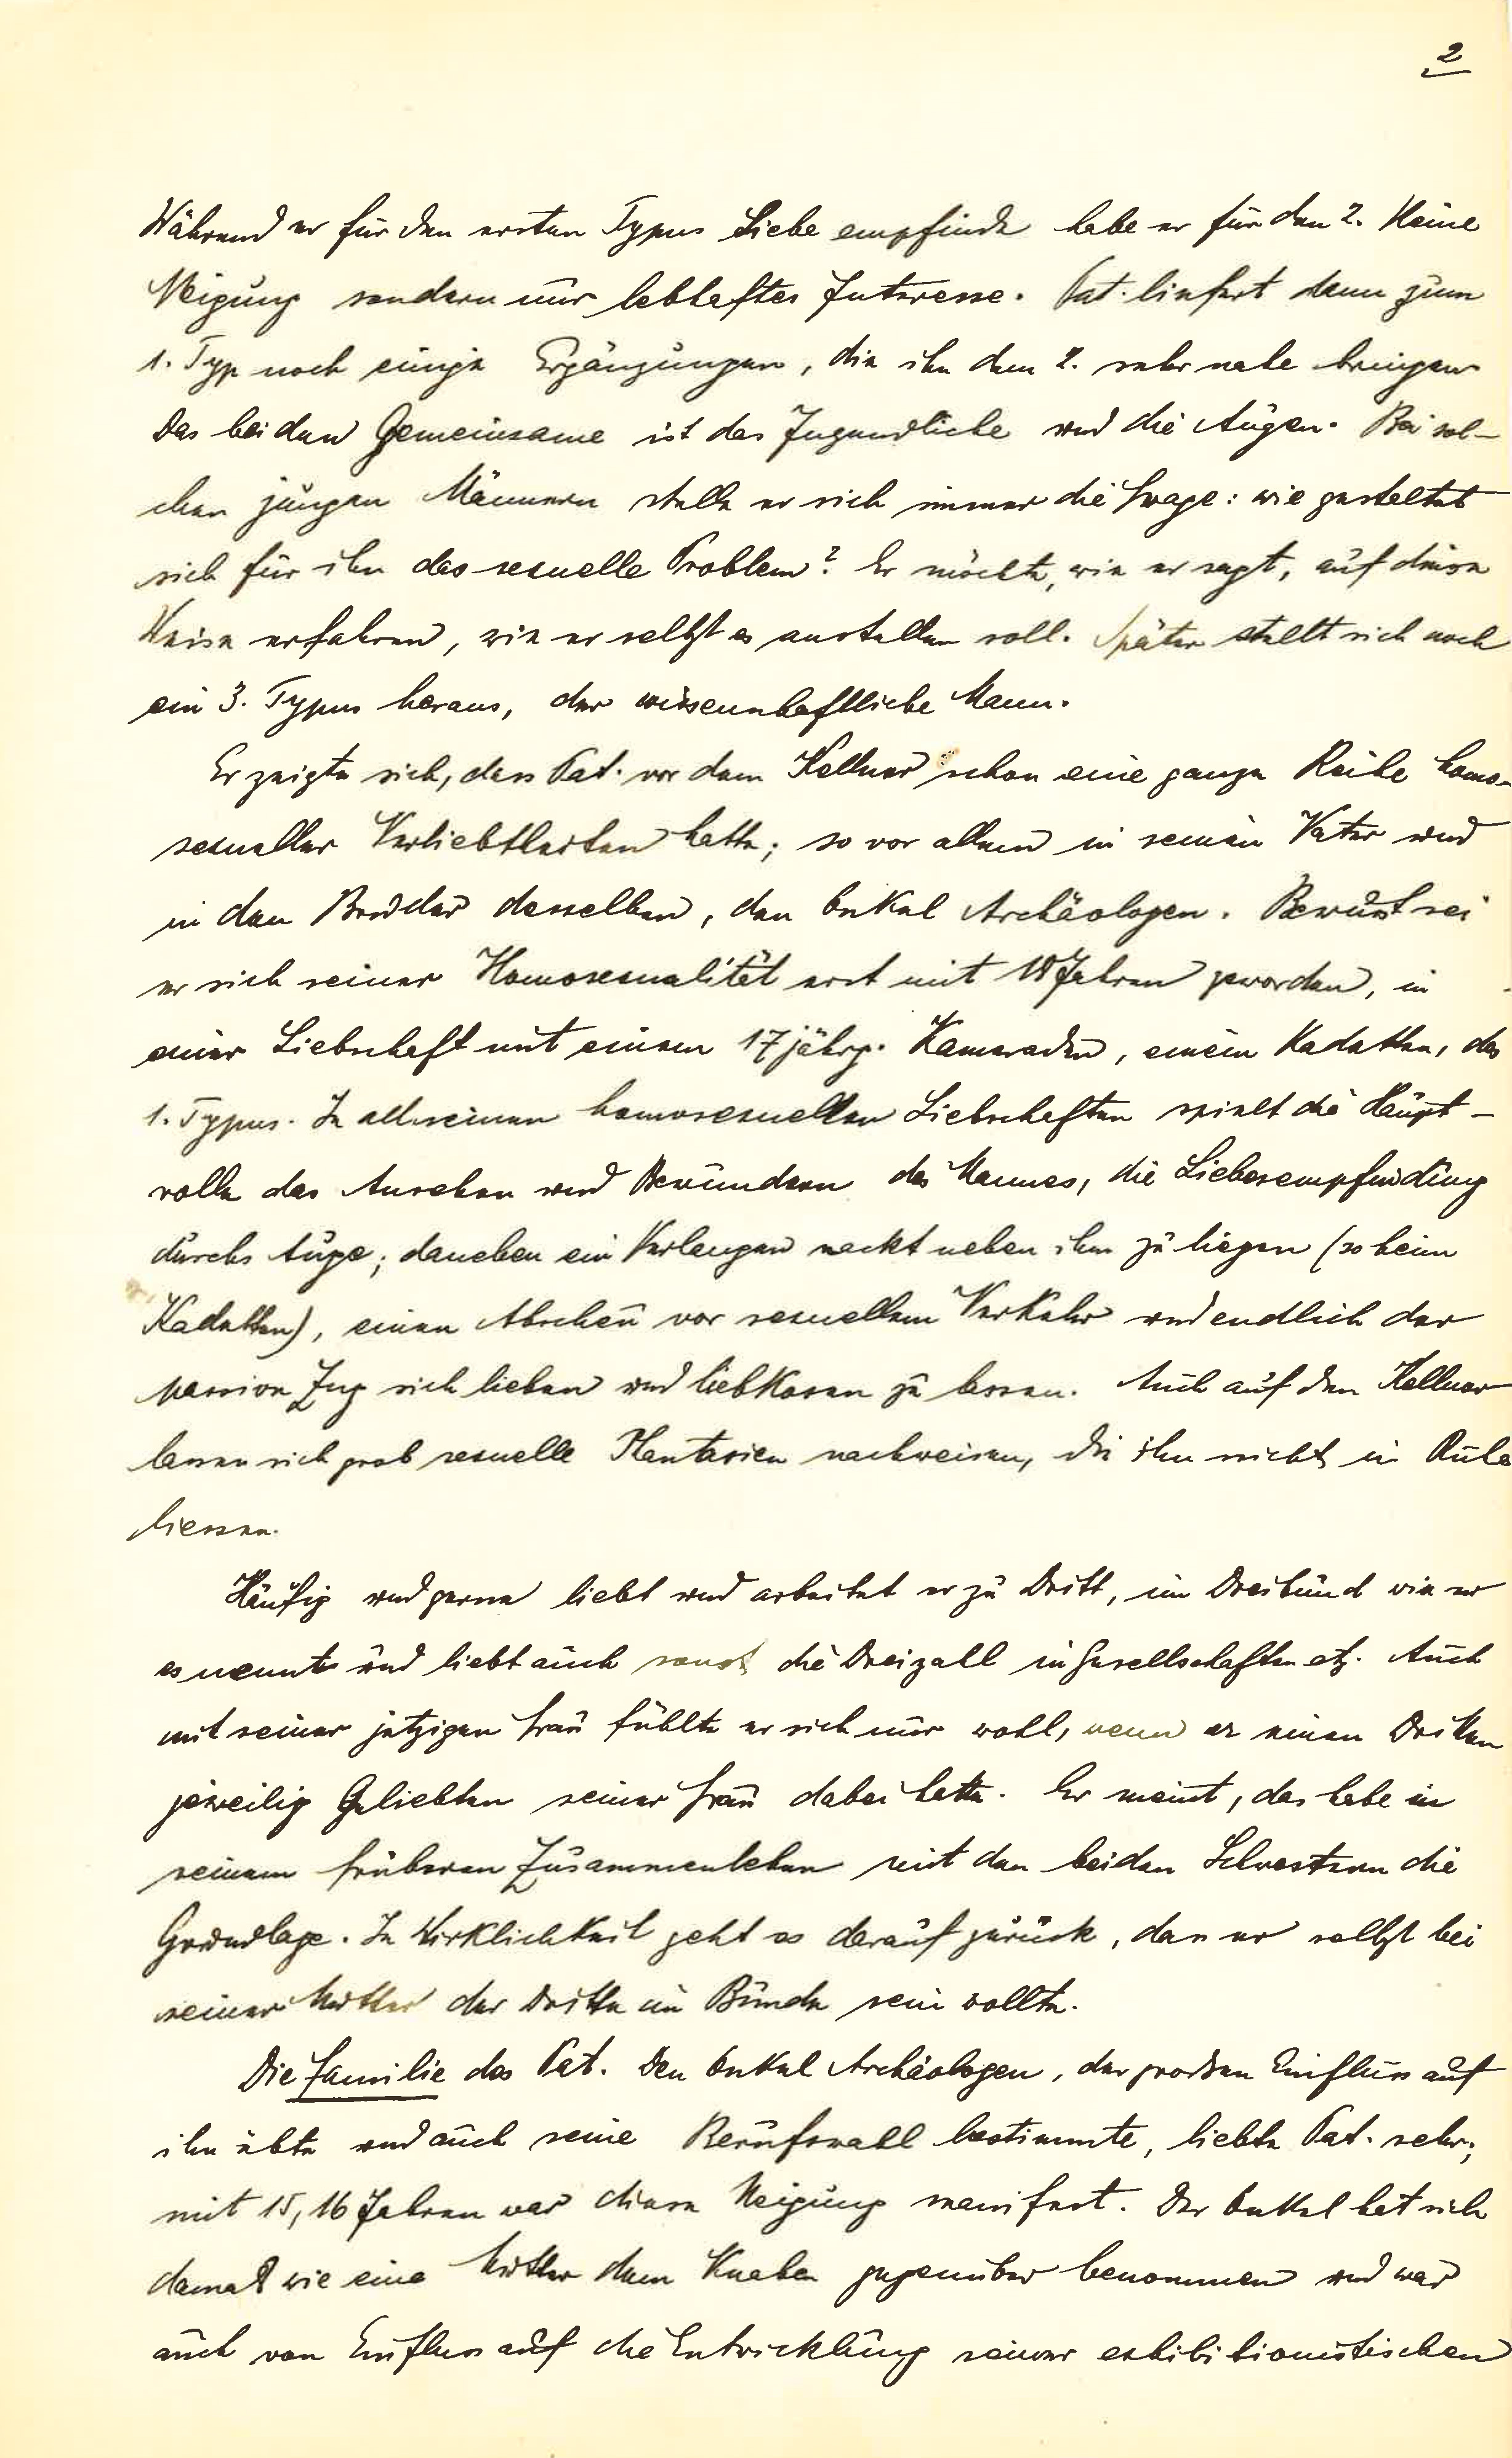 2
Während er für den ersten Typus Liebe empfinde habe er für den 2. Keine
Neigung sondern nur lebhaftes Interesse. Pat. liefert dann zum
1. Typ noch einige Ergänzungen, die ihn dem 2. sehr nahe bringen
Das beiden Gemeinsame ist das Jugendliche und die Augen. Bei sol-
chen jungen Männern stelle er sich immer die Frage: wie gestaltet
sich für ihn das sexuelle Problem? Er möchte, wie er sagt, auf diese
Weise erfahren, wie er selbst es anstellen soll. Später stellt sich noch
ein 3. Typus heraus, der wissenschaftliche Mann.
Er zeigte sich, dass Pat. vor dem Kellner schon eine ganze Reihe homo-
sexueller Verliebtheiten hatte; so vor allem in seinen Vater und
in den Bruder desselben, den Onkel Archäologen. Bewusst sei
er sich seiner Homosexualität erst mit 18 Jahren geworden, in
einer Liebschaft mit einem 17 jährg. Kameraden, einem Kadetten, des
1. Typus. In all seinen homosexuellen Liebschaften spielt die Haupt-
rolle das Ansehen und Bewundern des Mannes, die Liebesempfindung
durchs Auge; daneben ein Verlangen nackt neben ihm zu liegen (so beim
Kadetten), einen Abscheu vor sexuellem Verkehr und endlich der
passive Zug sich lieben und liebkosen zu lassen. Auch auf den Kellner
lassen sich grob sexuelle Phantasien nachweisen, die ihn nicht in Ruhe
liessen.
Häufig und gerne liebt und arbeitet er zu Dritt, im Dreibund wie er
es nennt und liebt auch sonst die Dreizahl in Gesellschaften etz. Auch
mit seiner jetzigen Frau fühlte er sich nur wohl, wenn er einen Dritten
jeweilig Geliebten seiner Frau dabei hatte. Er meint, das habe in
seinem früheren Zusammenleben mit den beiden Schwestern die
Grundlage. In Wirklichkeit geht es darauf zurück, dass er selbst bei
seiner Mutter der Dritte im Bunde sein wollte.
Die Familie des Pat. Den Onkel Archäologen, der grossen Einfluss auf
ihn übte und auch seine Berufswahl bestimmte, liebte Pat. sehr;
mit 15, 16 Jahren war diese Neigung manifest. Der Onkel hat sich
damals wie eine Mutter dem Knaben gegenüber benommen und war
auch von Einfluss auf die Entwicklung seiner exhibitionistischen